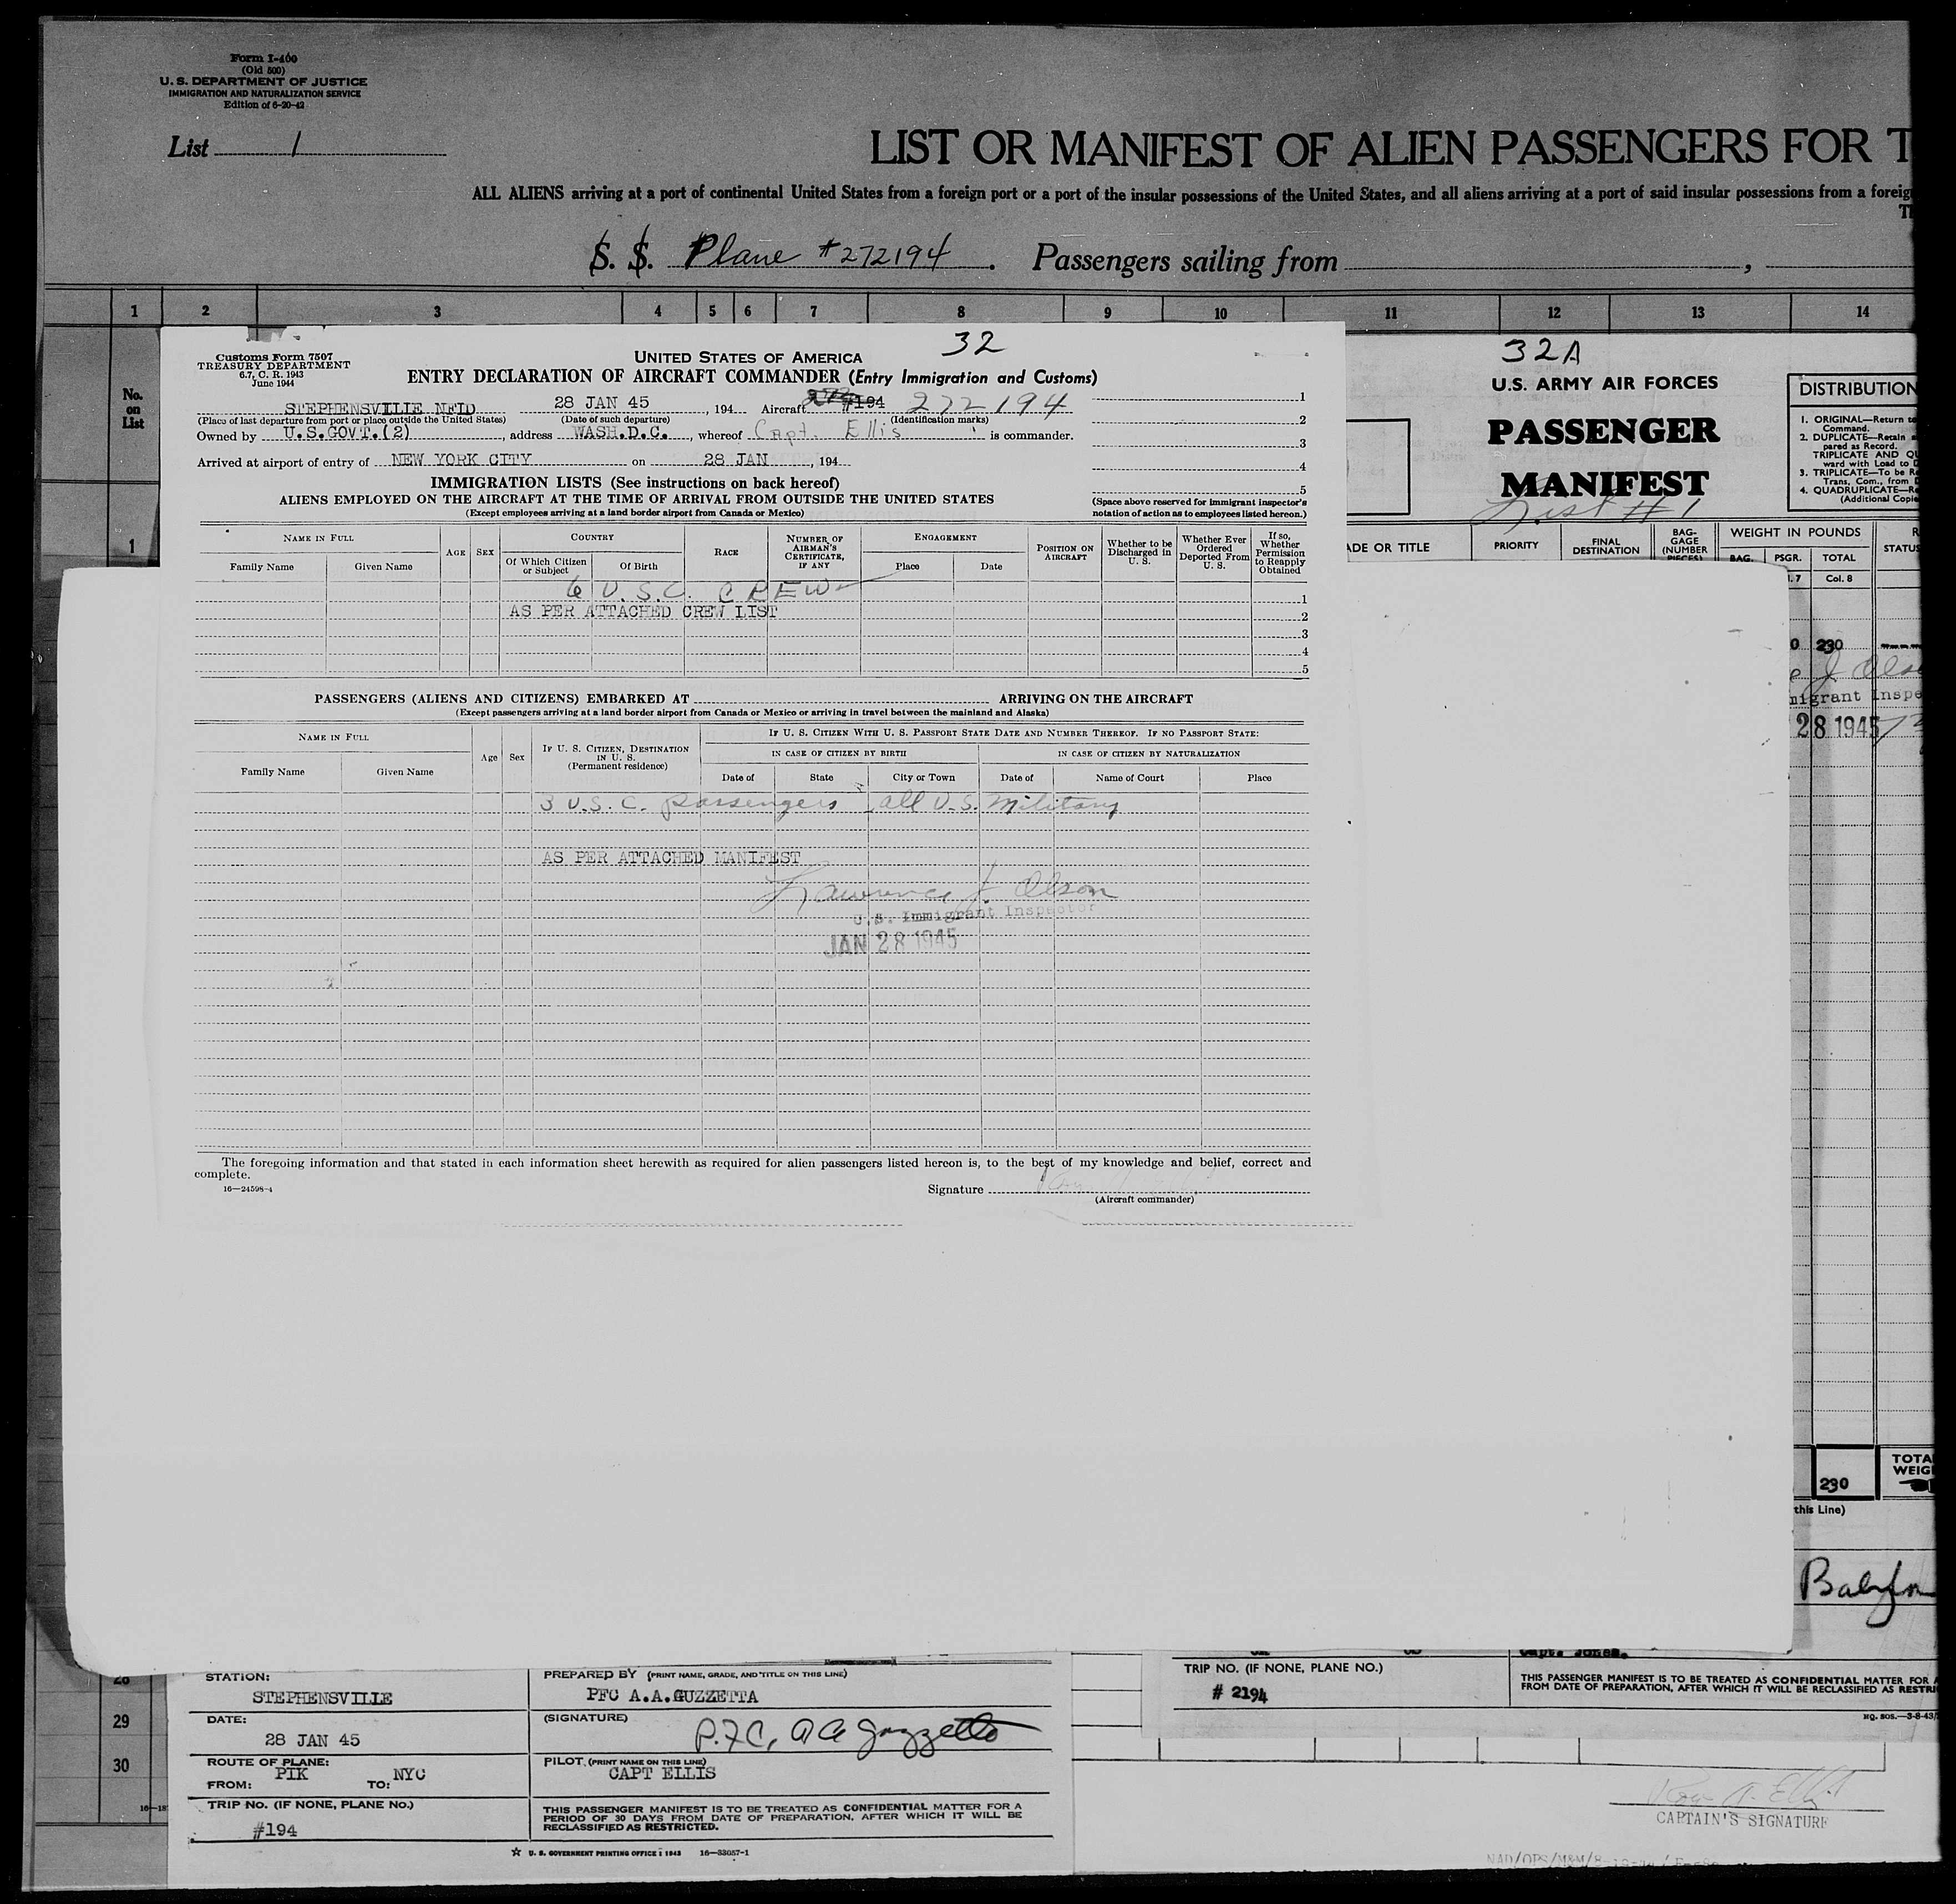 Form I-460
(Old 500)
U. S. DEPARTMENT OF JUSTICE
IMMIGRATION AND NATURALIZATION SERVICE
Edition of 6-20-42
List 1
LIST OR MANIFEST OF ALIEN PASSENGERS FOR T
ALL ALIENS arriving at a port of continental United States from a foreign port or a port of the insular possessions of the United States, and all aliens arriving at a port of said insular possessions from a foreig
S. S. Plane #272194. Passengers sailing from ,
1 2 3 4 5 6 7 8 9 10 11 12 13 14
No. on List
1
Customs Form 7507
TREASURY DEPARTMENT
6.7, C. R. 1943
June 1944
UNITED STATES OF AMERICA
32
ENTRY DECLARATION OF AIRCRAFT COMMANDER (Entry Immigration and Customs)
STEPHENSVILLE NFLD 28 JAN 45, 194 Aircraft #194 272194
(Place of last departure from port or place outside the United States) (Date of such departure) (Identification marks)
Owned by U.S.GOVT.(2), address WASH.D.C., whereof Capt. Ellis is commander.
Arrived at airport of entry of NEW YORK CITY on 28 JAN, 194
1
2
3
4
5
IMMIGRATION LISTS (See instructions on back hereof)
ALIENS EMPLOYED ON THE AIRCRAFT AT THE TIME OF ARRIVAL FROM OUTSIDE THE UNITED STATES
(Except employees arriving at a land border airport from Canada or Mexico)
(Space above reserved for immigrant inspector's
notation of action as to employees listed hereon.)
NAME IN FULL
Family Name Given Name
AGE SEX
COUNTRY
Of Which Citizen or Subject Of Birth
RACE
NUMBER OF AIRMAN'S CERTIFICATE, IF ANY
ENGAGEMENT
Place Date
POSITION ON AIRCRAFT
Whether to be Discharged in U. S.
Whether Ever Ordered Deported From U. S.
If so, Whether Permission to Reapply Obtained
6 U.S.C. CREW 1
AS PER ATTACHED CREW LIST 2
3
4
5
PASSENGERS (ALIENS AND CITIZENS) EMBARKED AT ARRIVING ON THE AIRCRAFT
(Except passengers arriving at a land border airport from Canada or Mexico or arriving in travel between the mainland and Alaska)
NAME IN FULL
Family Name Given Name
Age Sex
IF U. S. CITIZEN, DESTINATION IN U. S.
(Permanent residence)
IF U. S. CITIZEN WITH U. S. PASSPORT STATE DATE AND NUMBER THEREOF. IF NO PASSPORT STATE:
IN CASE OF CITIZEN BY BIRTH IN CASE OF CITIZEN BY NATURALIZATION
Date of State City or Town Date of Name of Court Place
3 U.S.C. passengers all U.S. Military
AS PER ATTACHED MANIFEST
Lawrence J. Olson
U.S. Immigrant Inspector
JAN 28 1945
The foregoing information and that stated in each information sheet herewith as required for alien passengers listed hereon is, to the best of my knowledge and belief, correct and
complete.
16—24598-4
Signature
(Aircraft commander)
32A
U.S. ARMY AIR FORCES
PASSENGER
MANIFEST
List #1
DISTRIBUTION
1. ORIGINAL—Return to
Command.
2. DUPLICATE—Retain
pared as Record.
TRIPLICATE AND QU
ward with Load to D
3. TRIPLICATE—To be R
Trans. Com., from
4. QUADRUPLICATE—R
(Additional Copie
ADE OR TITLE PRIORITY FINAL DESTINATION BAGGAGE (NUMBER PIECES) WEIGHT IN POUNDS
BAG. PSGR. TOTAL STATUS
. 7 Col. 8
0 230
e J Olso
migrant Inspe
28 1945
230
TOTA
WEIG
this Line)
Babylon
28
29
30
STATION:
STEPHENSVILLE
DATE:
28 JAN 45
ROUTE OF PLANE:
FROM: PIK TO: NYC
TRIP NO. (IF NONE, PLANE NO.)
#194
PREPARED BY (PRINT NAME, GRADE, AND TITLE ON THIS LINE)
PFC A.A.GUZZETTA
(SIGNATURE)
P.F.C. A A Guzzetta
PILOT (PRINT NAME ON THIS LINE)
CAPT ELLIS
THIS PASSENGER MANIFEST IS TO BE TREATED AS CONFIDENTIAL MATTER FOR A
PERIOD OF 30 DAYS FROM DATE OF PREPARATION, AFTER WHICH IT WILL BE
RECLASSIFIED AS RESTRICTED.
☆ U. S. GOVERNMENT PRINTING OFFICE : 1943 16—33057-1
16—18
Capt. Jones.
TRIP NO. (IF NONE, PLANE NO.)
# 2194
THIS PASSENGER MANIFEST IS TO BE TREATED AS CONFIDENTIAL MATTER FOR A
FROM DATE OF PREPARATION, AFTER WHICH IT WILL BE RECLASSIFIED AS RESTRI
HQ. SOS.—3-8-43/
CAPTAIN'S SIGNATURE